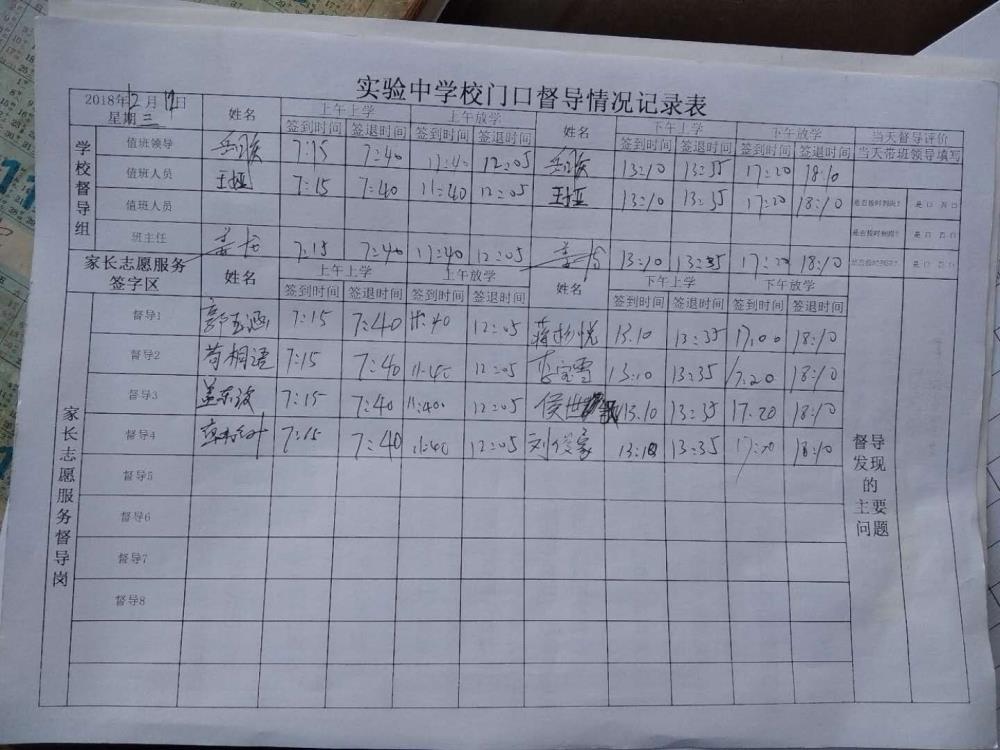 实验中学校门口督导情况记录表
2018年12月 日 姓名 上午上学 上午放学 姓名 下午上学 下午放学 当天督导评价
星期三 签到时间 签退时间 签到时间 签退时间 签到时间 签退时间 签到时间 签退时间 当天带班领导填写
学校督导组
值班领导 7:15 7:40 11:40 12:05 13:10 13:35 17:20 18:10
值班人员 7:15 7:40 11:40 12:05 13:10 13:35 17:20 18:10 是否按时到岗? 是□ 否□
值班人员 是□ 否□
班主任 7:15 7:40 11:40 12:05 13:10 13:35 17:20 18:10 是□ 否□
家长志愿服务签字区 姓名 上午上学 上午放学 姓名 下午上学 下午放学
签到时间 签退时间 签到时间 签退时间 签到时间 签退时间 签到时间 签退时间
家长志愿服务督导岗
督导1 7:15 7:40 11:40 12:05 13.10 13:35 17:00 18:10
督导2 苟桐语 7:15 7:40 11:40 12:05 李宝雪 13:10 13:35 17:20 18:10
督导3 7:15 7:40 11:40 12:05 13.10 13:35 17.20 18:10
督导4 7:15 7:40 11:40 12:05 刘俊豪 13:10 13:35 18:10
督导5
督导6
督导7
督导8
督导发现的主要问题